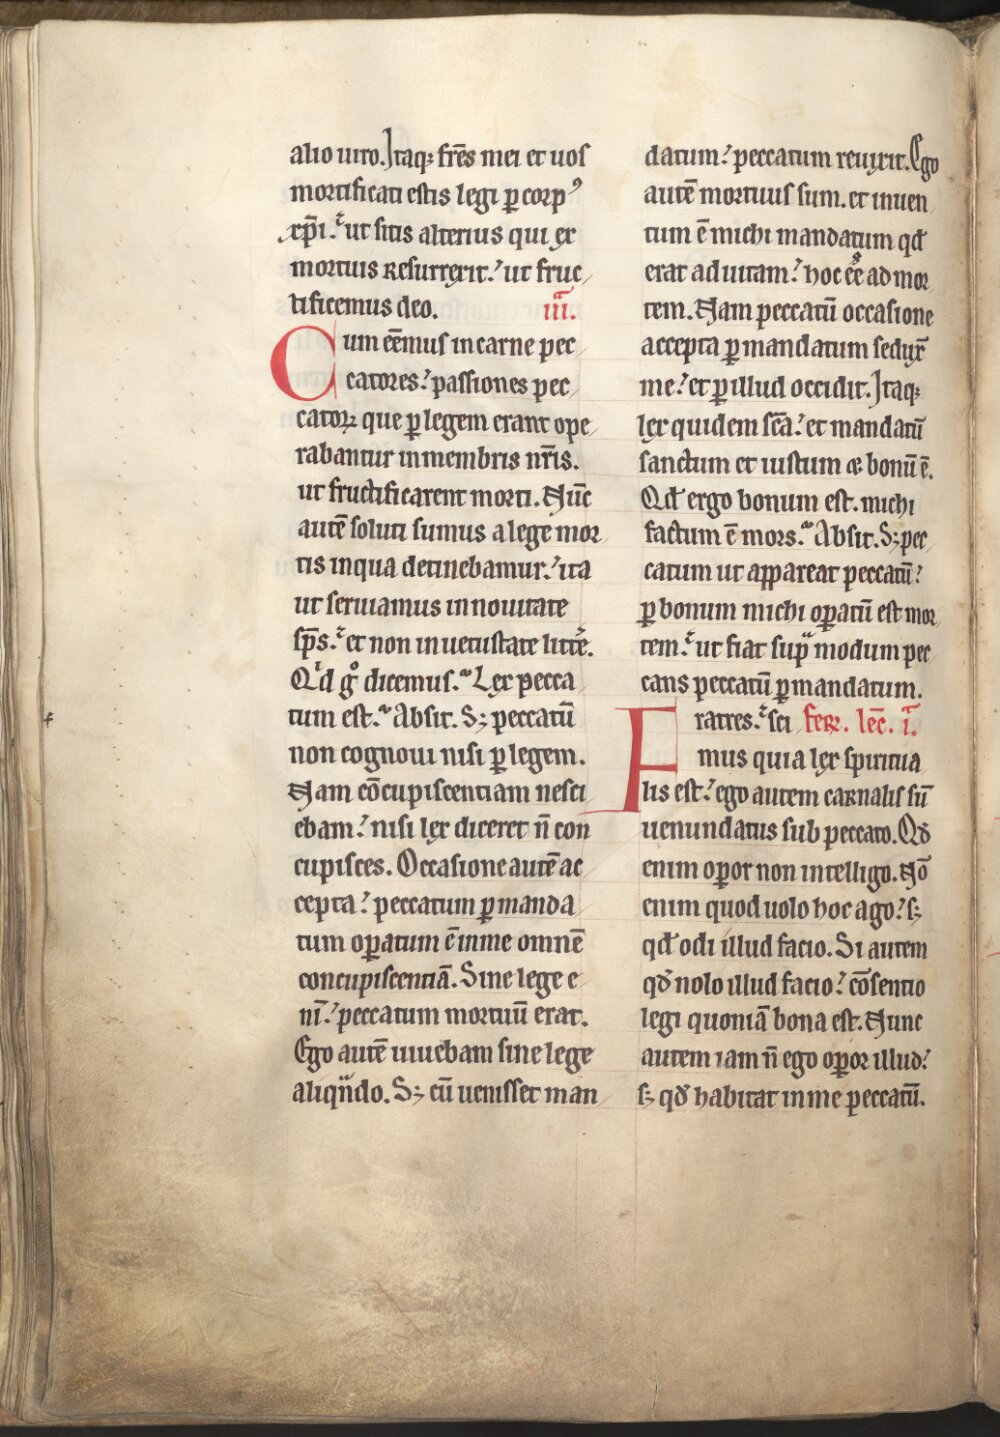 alio uiro. Itaq; fr̄es mei et uos
mortificati estis legi ꝑ corpꝰ
xp̄i. ut sitis alterius qui ex
mortuis resurrexit. ut fruc
tificemus deo. iii.
Cum eēmus in carne pec
catores. passiones pec
catoꝝ que ꝑ legem erant ope
rabantur in membris nr̄is.
ut fructificarent morti. Nūc
autē soluti sumus a lege mor
tis in qua detinebamur. ita
ut seruiamus in nouitate
sp̄s. et non in uetustate littē.
Qid gͦ dicemus. Lex pecca
tum est. Absit. S; peccatū
non cognoui nisi ꝑ legem.
Nam cōcupiscentiam nesci
ebam. nisi lex diceret n̄ con
cupisces. Occasione autē ac
cepta. peccatum ꝑ manda
tum oꝑatum ē in me omnē
concupiscentiā. Sine lege e
nī. peccatum mortuū erat.
Ego autē uiuebam sine lege
aliqn̄do. S; cū uenisset man
datum. peccatum reuixit. Ego
autē mortuus sum. et inuen
tum ē michi mandatum qd̄
erat ad uitam. hoc eē ad mor
tem. Nam peccatū occasione
accepta ꝑ mandatum sedux̄
me. et ꝑ illud occidit. Itaq;
lex quidem sc̄a. et mandatū
sanctum et iustum & bonū ē.
Qd̄ ergo bonum est. michi
factum ē mors. Absit. S; pec
catum ut appareat peccatū.
ꝑ bonum michi oꝑatū est mor
tem. ut fiat supᵃ modum pec
cans peccatū ꝑ mandatum.
Fratres. sci feꝝ. lec̄. i.
mus quia lex spiritua
lis est. ego autem carnalis sū
uenundatus sub peccato. Qd̄
enim oꝑor non intelligo. Nō
enim quod uolo hoc ago. s;
qd̄ odi illud facio. Si autem
qd̄ nolo illud facio. cōsentio
legi quoniā bona est. Nunc
autem iam n̄ ego oꝑor illud.
s; qd̄ habitat in me peccatū.